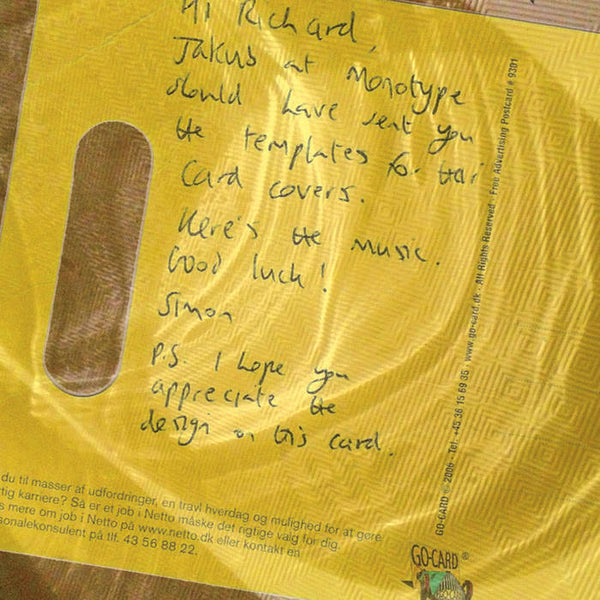 Hi Richard,
Jakub at Monotype
should have sent you
the templates for their
card covers.
Here's the music.
Good luck!
Simon
P.S. I hope you
appreciate the
design on this card.
du til masser af udfordringer, en travl hverdag og mulighed for at gøre
rtig karriere? Så er et job i Netto måske det rigtige valg for dig.
s mere om job i Netto på www.netto.dk eller kontakt en
sonalekonsulent på tlf. 43 56 88 22.
GO-CARD © 2006 · Tel: +45 36 15 69 35 · www.go-card.dk · All Rights Reserved · Free Advertising Postcard # 9301
GO-CARD ®